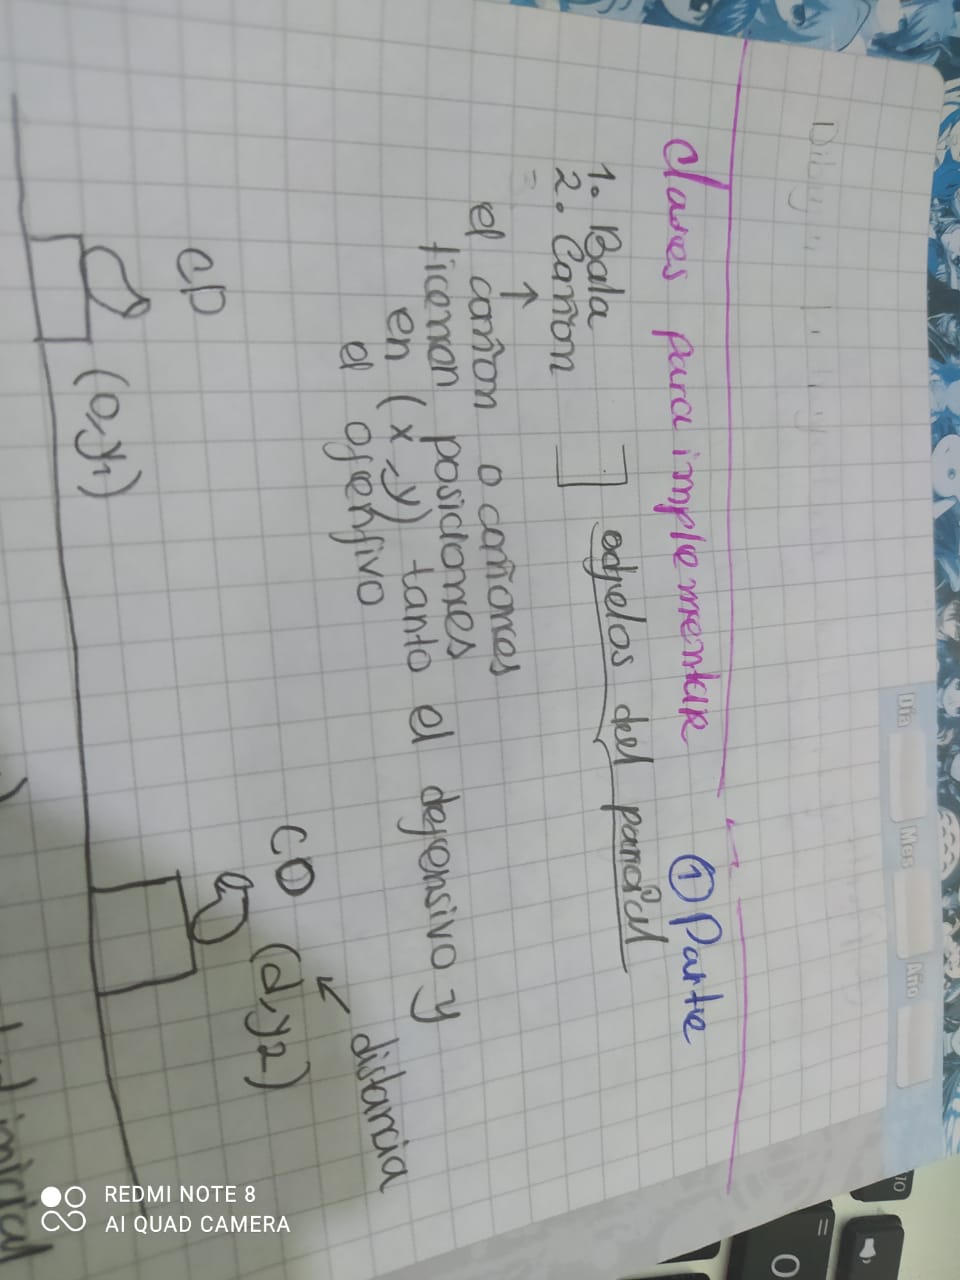 Día Mes Año
Clases para implementar ① Parte
1. Bala
2. Cañon
objetos del parcial
el cañon o cañones
tienen posiciones
en (x,y) tanto el defensivo y
el ofensivo
distancia
CO (d,y2)
CD
(0,y1)
inicial
10
=
0
REDMI NOTE 8
AI QUAD CAMERA